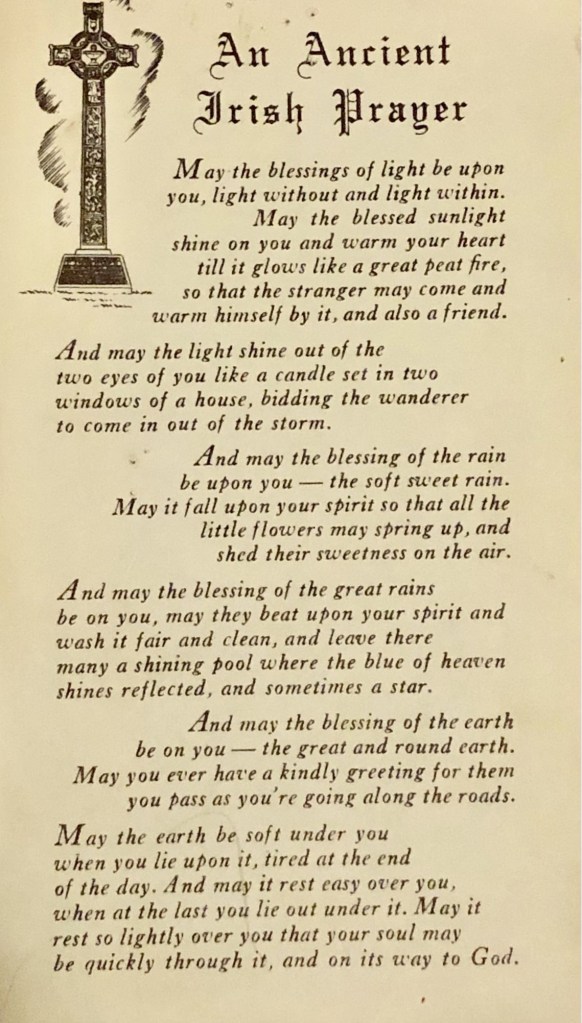 An Ancient
Irish Prayer
May the blessings of light be upon
you, light without and light within.
May the blessed sunlight
shine on you and warm your heart
till it glows like a great peat fire,
so that the stranger may come and
warm himself by it, and also a friend.
And may the light shine out of the
two eyes of you like a candle set in two
windows of a house, bidding the wanderer
to come in out of the storm.
And may the blessing of the rain
be upon you — the soft sweet rain.
May it fall upon your spirit so that all the
little flowers may spring up, and
shed their sweetness on the air.
And may the blessing of the great rains
be on you, may they beat upon your spirit and
wash it fair and clean, and leave there
many a shining pool where the blue of heaven
shines reflected, and sometimes a star.
And may the blessing of the earth
be on you — the great and round earth.
May you ever have a kindly greeting for them
you pass as you're going along the roads.
May the earth be soft under you
when you lie upon it, tired at the end
of the day. And may it rest easy over you,
when at the last you lie out under it. May it
rest so lightly over you that your soul may
be quickly through it, and on its way to God.